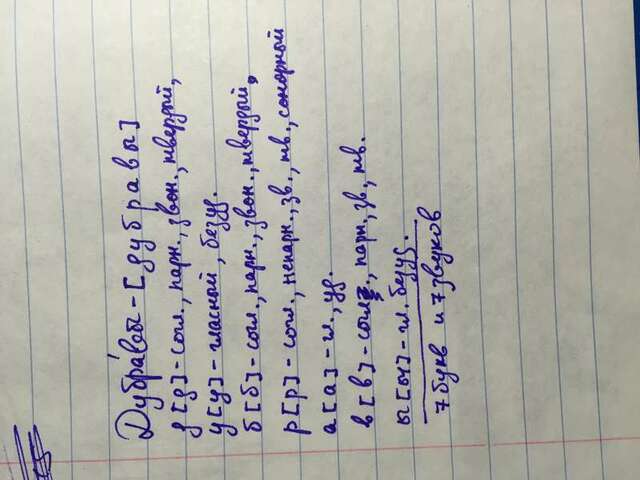 Дубра́вы - [дубравы]
д [д] - согл., парн., звон., твердый,
у [у] - гласный, безуд.
б [б] - согл., парн., звон., твердый,
р [р] - согл., непарн., зв., тв., сонорный
а [а] - гл., уд.
в [в] - согл., парн., зв., тв.
ы [ы] - гл. безуд.
7 букв и 7 звуков